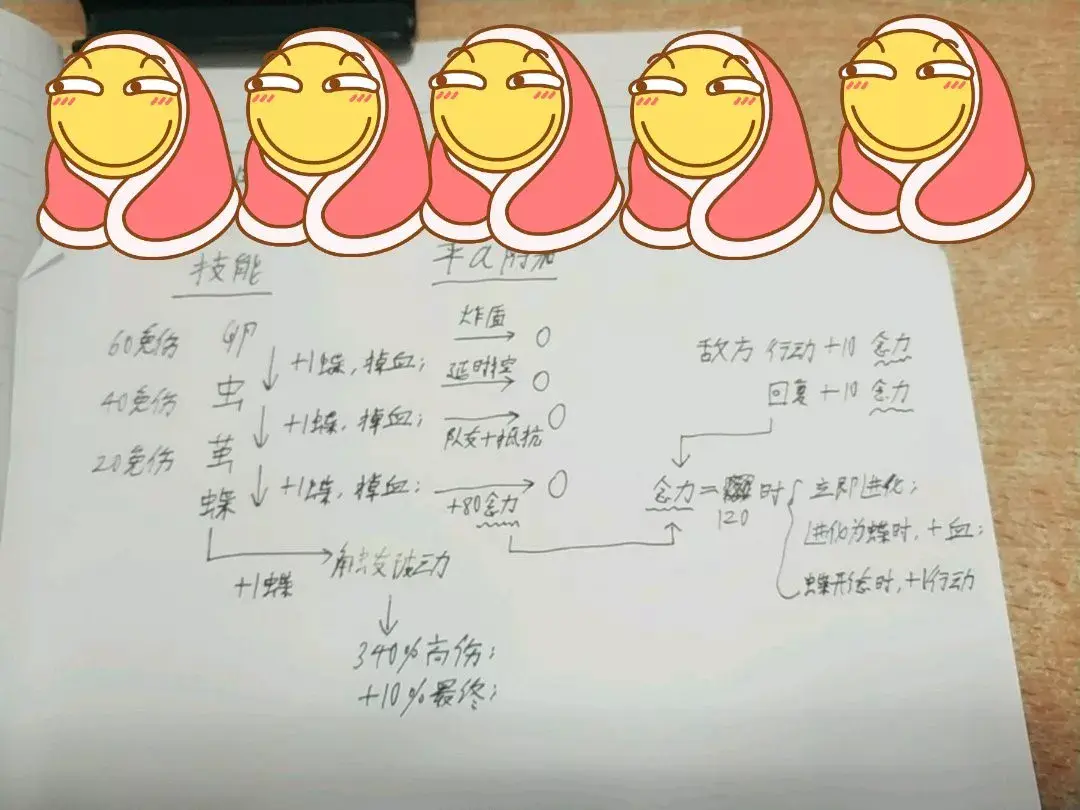 技能
平a附加
60免伤 卵
+1蝶,掉血;
炸盾
40免伤 虫
+1蝶,掉血;
延时控
20免伤 茧
+1蝶,掉血;
队友+抵抗
蝶
+80念力
+1蝶
触发被动
340%高伤;
+10%最终;
敌方 行动+10 念力
回复+10 念力
念力=120时
立即进化;
进化为蝶时,+血;
蝶形态时,+1行动